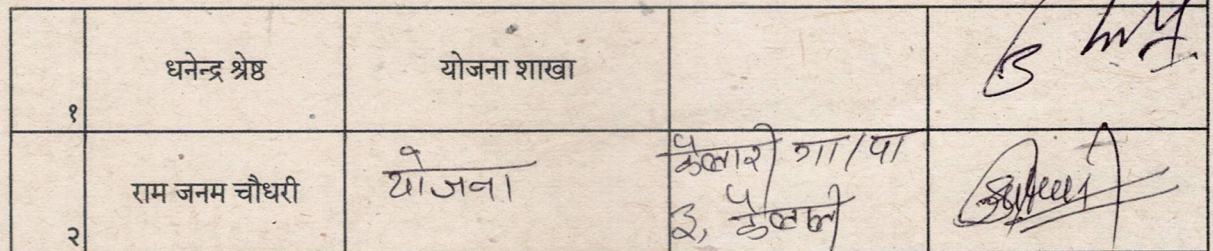 १ धनेन्द्र श्रेष्ठ योजना शाखा
२ राम जनम चौधरी योजना कैलारी गा/पा
३, कैलाली